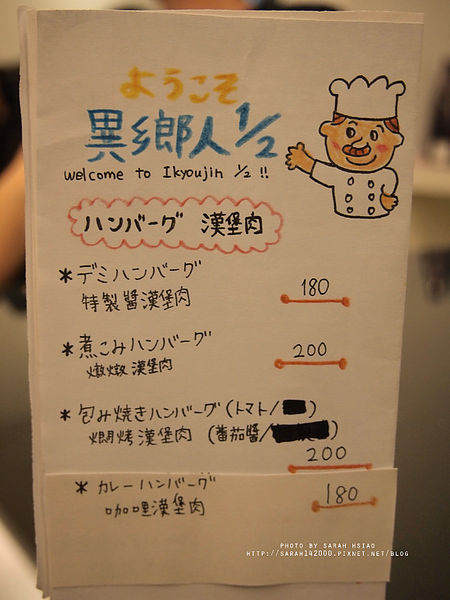 ようこそ
異鄉人 1/2
welcome to Ikyoujin 1/2 !!
ハンバーグ 漢堡肉
*デミハンバーグ
特製醬漢堡肉 180
*煮こみハンバーグ
燉燉漢堡肉 200
*包み焼きハンバーグ(トマト/ )
燜烤漢堡肉 (番茄醬/ )
200
*カレーハンバーグ
咖哩漢堡肉 180
PHOTO BY SARAH HSIAO
HTTP://SARAH142000.PIXNET.NET/BLOG